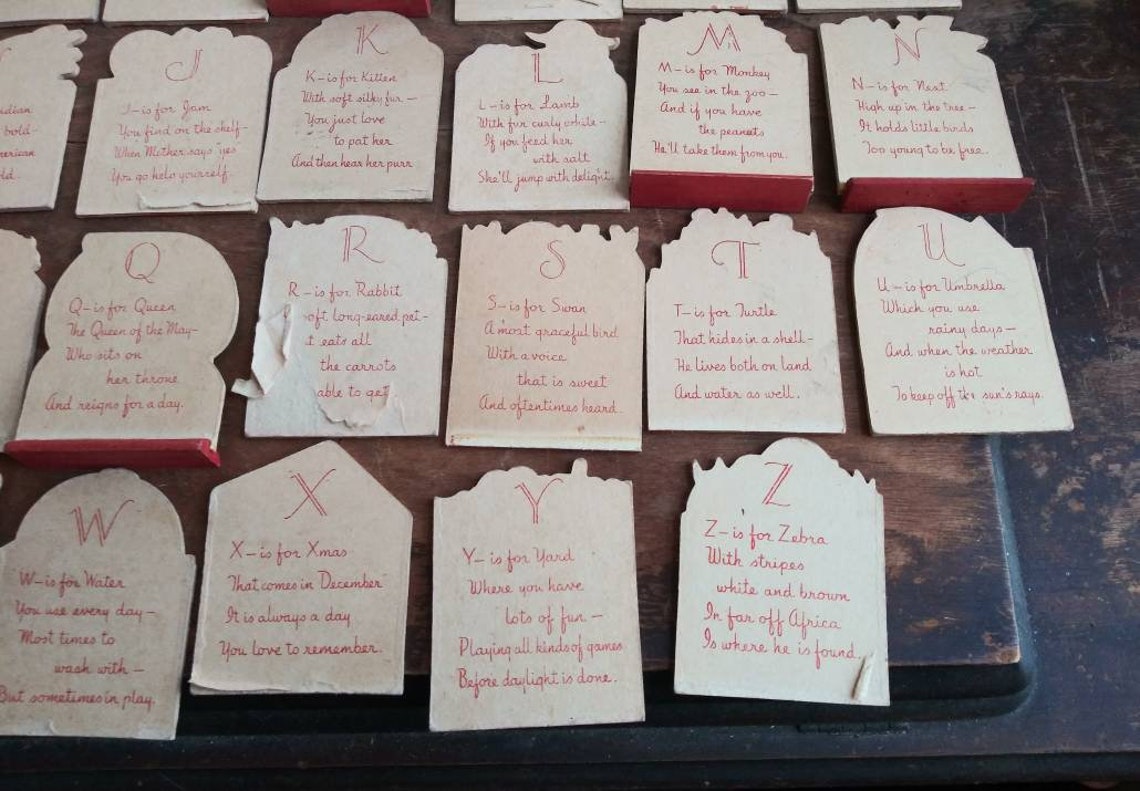 dian
bold-
merican
ld.
J
J-is for Jam
You find on the shelf-
When Mother says "yes"
You go help yourself.
K
K-is for Kitten
With soft silky fur-
You just love
to pat her
And then hear her purr
L
L-is for Lamb
With fur curly white-
If you feed her
with salt
She'll jump with delight.
M
M-is for Monkey
You see in the zoo-
And if you have
the peanuts
He'll take them from you.
N
N-is for Nest
High up in the tree-
It holds little birds
Too young to be free.
Q
Q-is for Queen
The Queen of the May-
Who sits on
her throne
And reigns for a day.
R
R-is for Rabbit
soft long-eared pet-
t eats all
the carrots
able to get
S
S-is for Swan
A most graceful bird
With a voice
that is sweet
And oftentimes heard.
T
T-is for Turtle
That hides in a shell-
He lives both on land
And water as well.
U
U-is for Umbrella
Which you use
rainy days-
And when the weather
is hot
To keep off the sun's rays.
W
W-is for Water
You use every day-
Most times to
wash with-
But sometimes in play.
X
X-is for Xmas
That comes in December
It is always a day
You love to remember.
Y
Y-is for Yard
Where you have
lots of fun-
Playing all kinds of games
Before daylight is done.
Z
Z-is for Zebra
With stripes
white and brown
In far off Africa
Is where he is found.